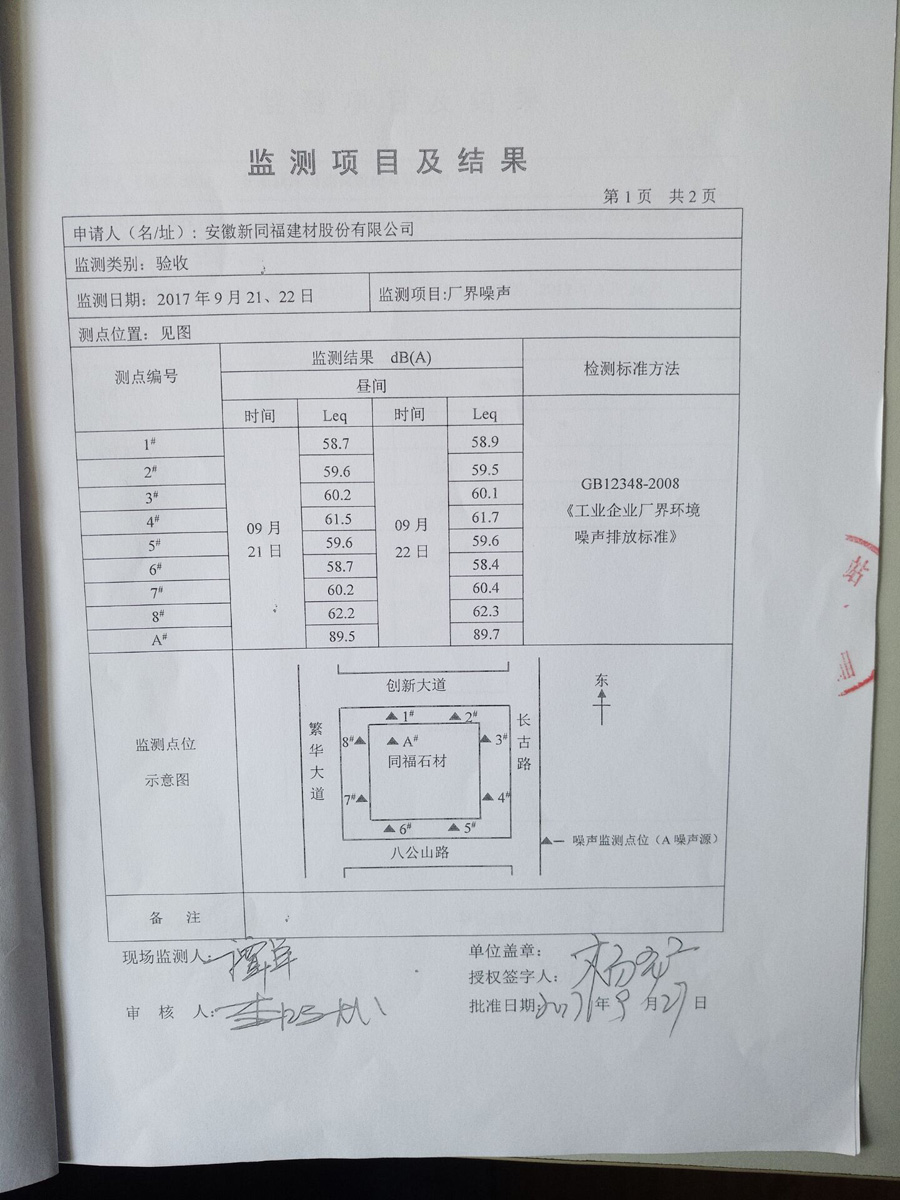 监测项目及结果
第 1 页 共 2 页
申请人（名/址）: 安徽新同福建材股份有限公司
监测类别：验收
监测日期：2017 年 9 月 21、22 日 监测项目:厂界噪声
测点位置：见图
测点编号 监测结果 dB(A) 检测标准方法
昼间
时间 Leq 时间 Leq
1# 58.7 58.9
2# 59.6 59.5
3# 60.2 60.1
4# 61.5 61.7
5# 59.6 59.6
6# 58.7 58.4
7# 60.2 60.4
8# 62.2 62.3
A# 89.5 89.7
09 月
21 日
09 月
22 日
GB12348-2008
《工业企业厂界环境
噪声排放标准》
监测点位
示意图
创新大道
繁华大道
长古路
八公山路
▲1# ▲2#
8#▲ ▲A# ▲3#
同福石材
7#▲ ▲4#
▲6# ▲5#
东
▲— 噪声监测点位（A 噪声源）
备 注
现场监测人:
单位盖章：
授权签字人：
审 核 人:
批准日期: 年 9 月 27 日
站